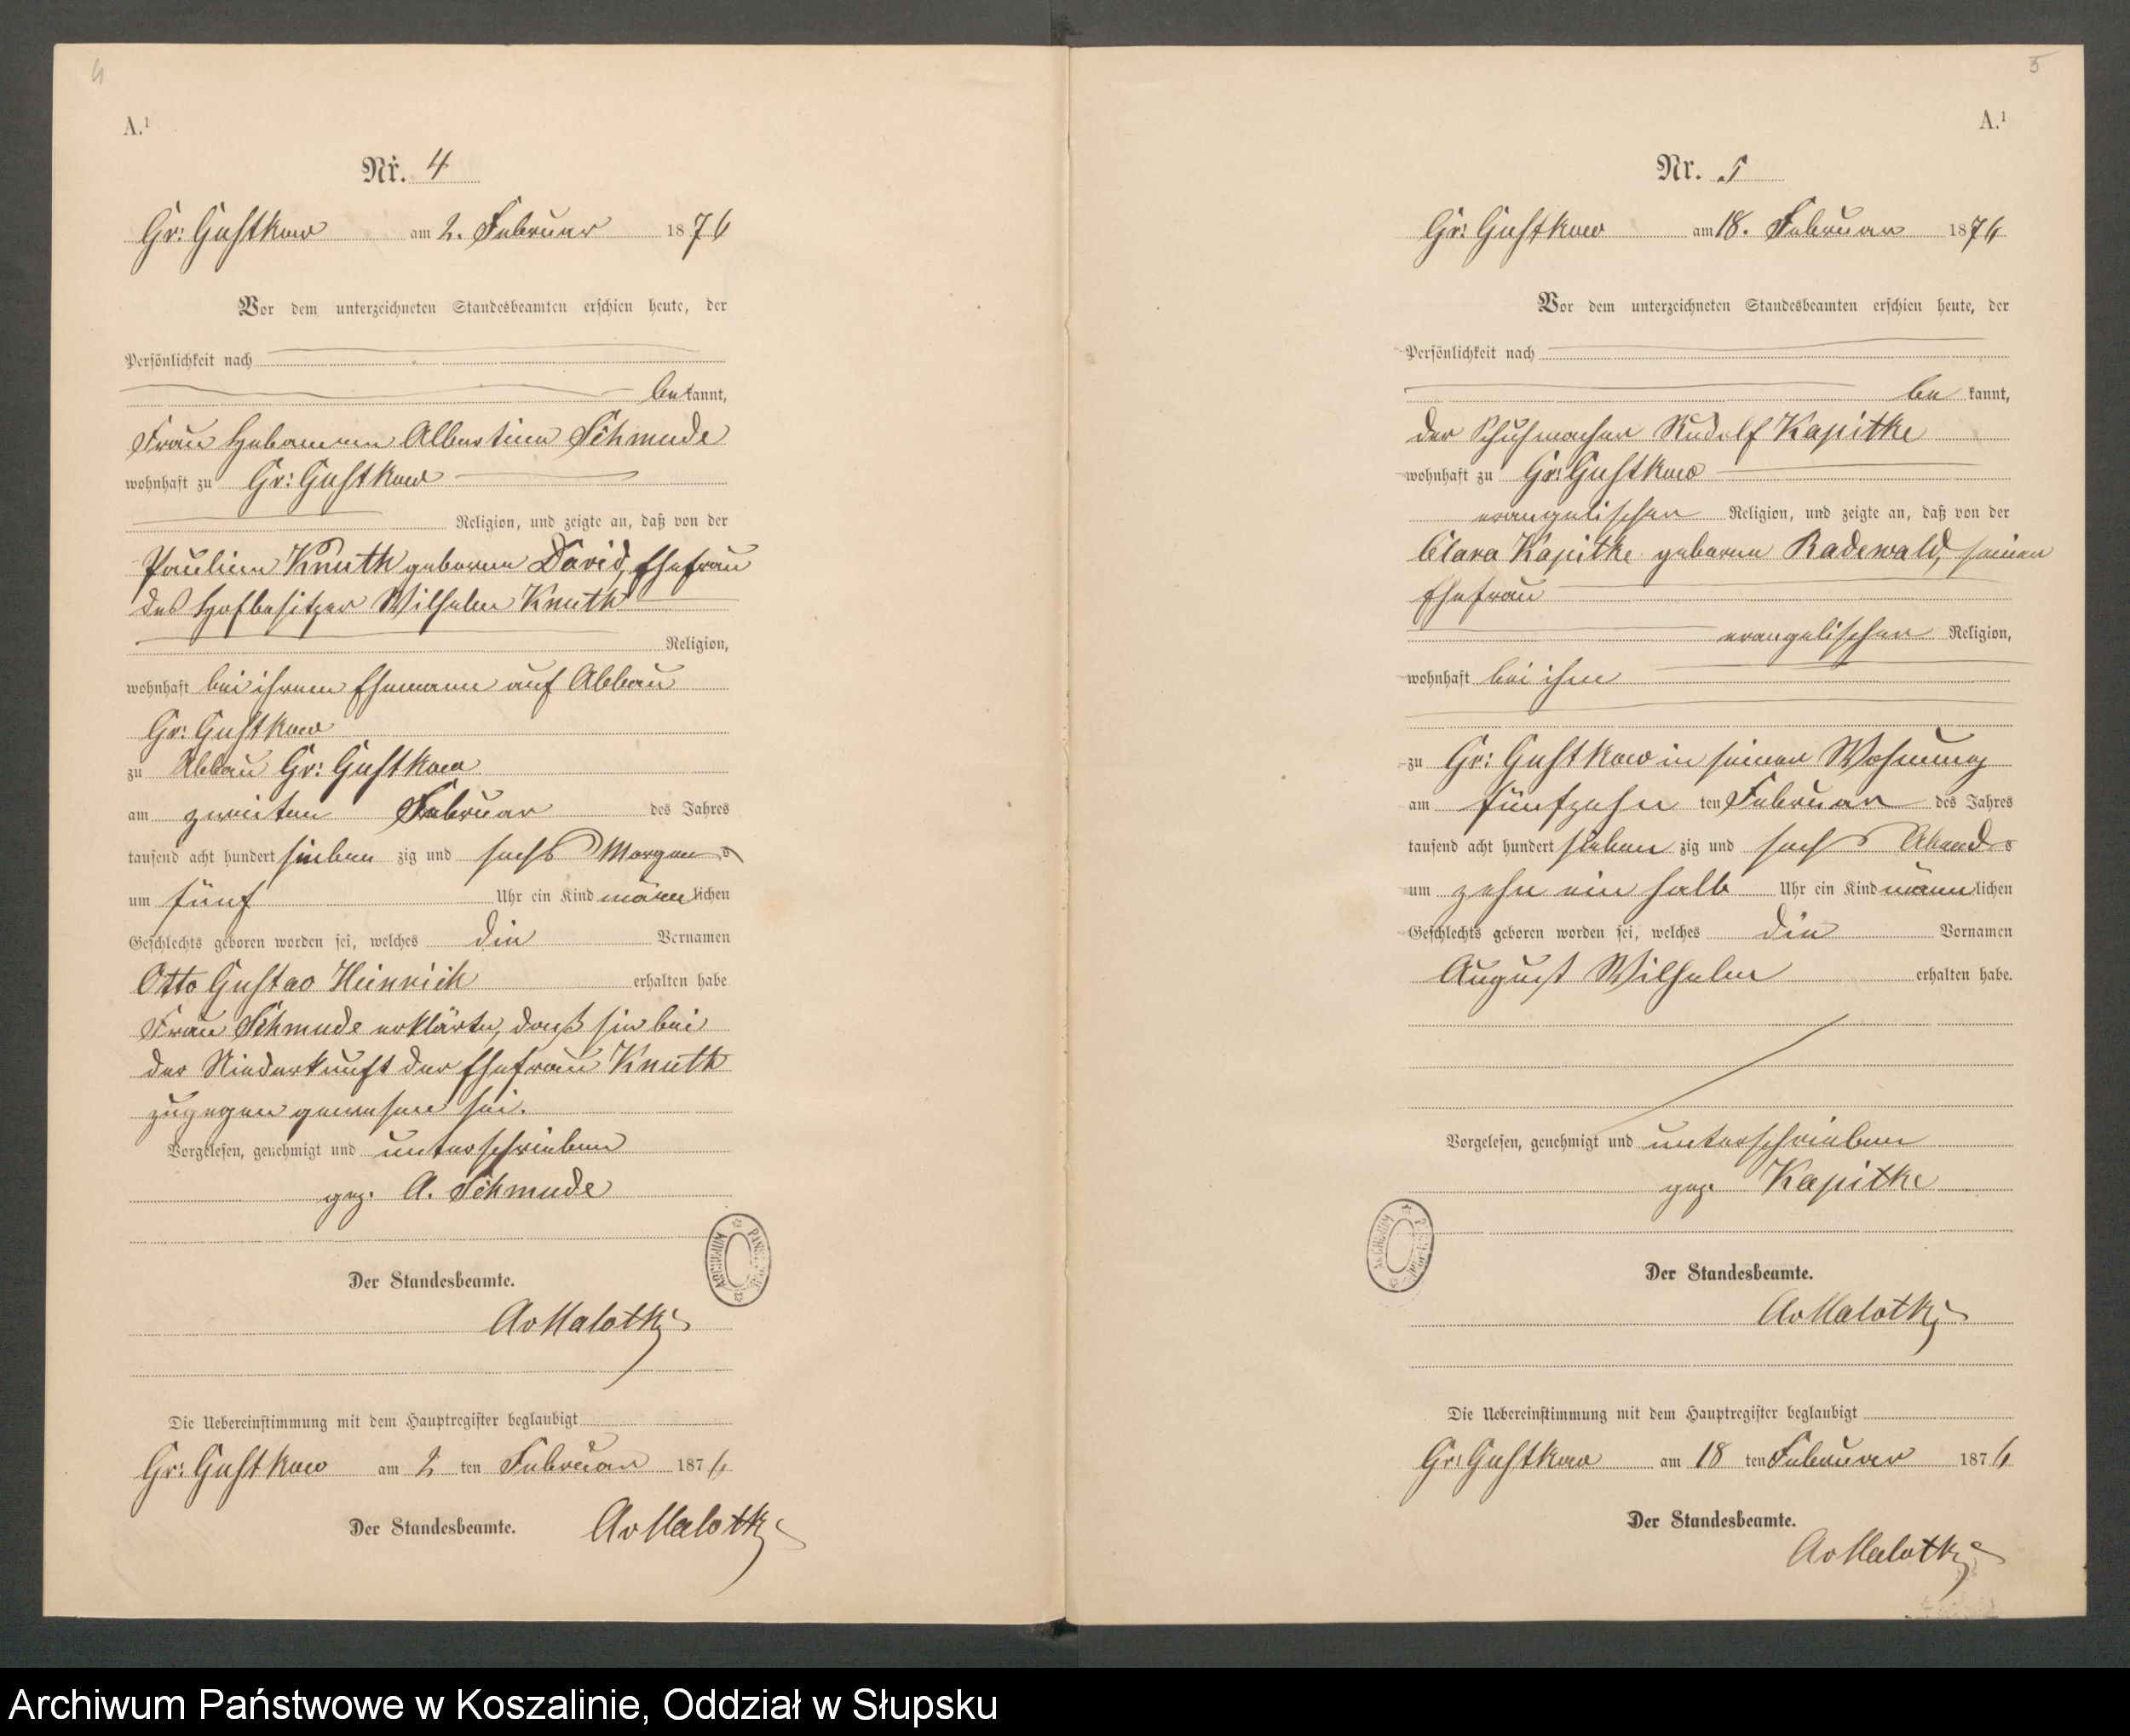 4
A.¹
Nr. 4
Gr: Gustkow am 2. Februar 1876
Vor dem unterzeichneten Standesbeamten erschien heute, der
Persönlichkeit nach
bekannt,
Frau Hebamme Albertine Schmude
wohnhaft zu Gr: Gustkow
Religion, und zeigte an, daß von der
Pauline Knuth geborene David, Ehefrau
des Hofbesitzer Wilhelm Knuth
Religion,
wohnhaft bei ihrem Ehemann auf Abbau
Gr: Gustkow
zu Abbau Gr: Gustkow
am zweiten Februar des Jahres
tausend acht hundert sieben zig und sechs Morgens
um fünf Uhr ein Kind männlichen
Geschlechts geboren worden sei, welches die Vornamen
Otto Gustav Heinrich erhalten habe
Frau Schmude erklärte, daß sie bei
der Niederkunft der Ehefrau Knuth
zugegen gewesen sei.
Vorgelesen, genehmigt und unterschrieben
gez. A. Schmude
ARCHIWUM
Der Standesbeamte.
AvMalotki
Die Uebereinstimmung mit dem Hauptregister beglaubigt
Gr: Gustkow am 2 ten Februar 1876
Der Standesbeamte. AvMalotki
5
A.¹
Nr. 5
Gr: Gustkow am 18. Februar 1876
Vor dem unterzeichneten Standesbeamten erschien heute, der
Persönlichkeit nach
be kannt,
der Schuhmacher Rudolf Kapitke
wohnhaft zu Gr: Gustkow
evangelischer Religion, und zeigte an, daß von der
Clara Kapitke geborene Radewald, seiner
Ehefrau
evangelischer Religion,
wohnhaft bei ihm
zu Gr: Gustkow in seiner Wohnung
am fünfzehn ten Februar des Jahres
tausend acht hundert sieben zig und sechs Abends
um zehn ein halb Uhr ein Kind männlichen
Geschlechts geboren worden sei, welches die Vornamen
August Wilhelm erhalten habe.
Vorgelesen, genehmigt und unterschrieben
gez. Kapitke
ARCHIWUM
Der Standesbeamte.
AvMalotki
Die Uebereinstimmung mit dem Hauptregister beglaubigt
Gr: Gustkow am 18 ten Februar 1876
Der Standesbeamte.
AvMalotki
Archiwum Państwowe w Koszalinie, Oddział w Słupsku